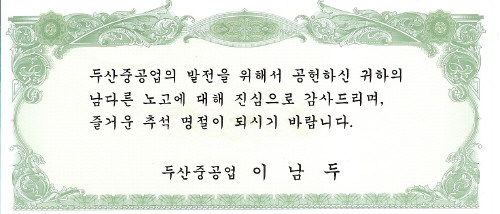 두산중공업의 발전을 위해서 공헌하신 귀하의
남다른 노고에 대해 진심으로 감사드리며,
즐거운 추석 명절이 되시기 바랍니다.
두산중공업 이 남 두